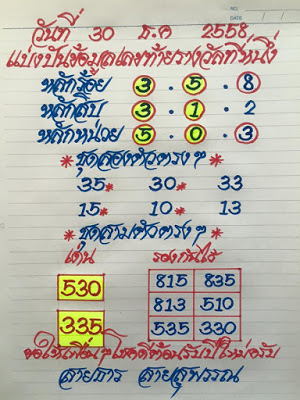 NO.
DATE
วันที่ 30 ธ.ค 2558
แบ่งปันข้อมูลเลขท้ายรางวัลที่หนึ่ง
หลักร้อย 3 . 5 . 8
หลักสิบ 3 . 1 . 2
หลักหน่วย 5 . 0 . 3
* ชุดสองตัวตรงๆ *
35* 30* 33
15* 10* 13
* ชุดสามตัวตรงๆ *
เด่น รองกันไว้
530 815 835
813 510
335 535 330
ขอให้เพื่อนๆโชคดีต้อนรับปีใหม่ครับ
สายธาร สายสุพรรณ